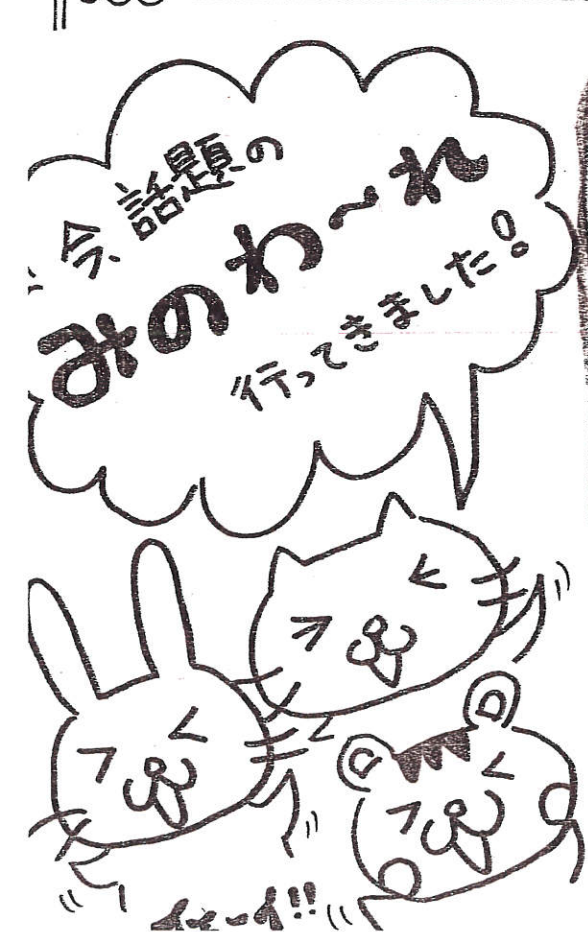 今、話題の
みのわ〜れ
行ってきました!
イェーイ!!